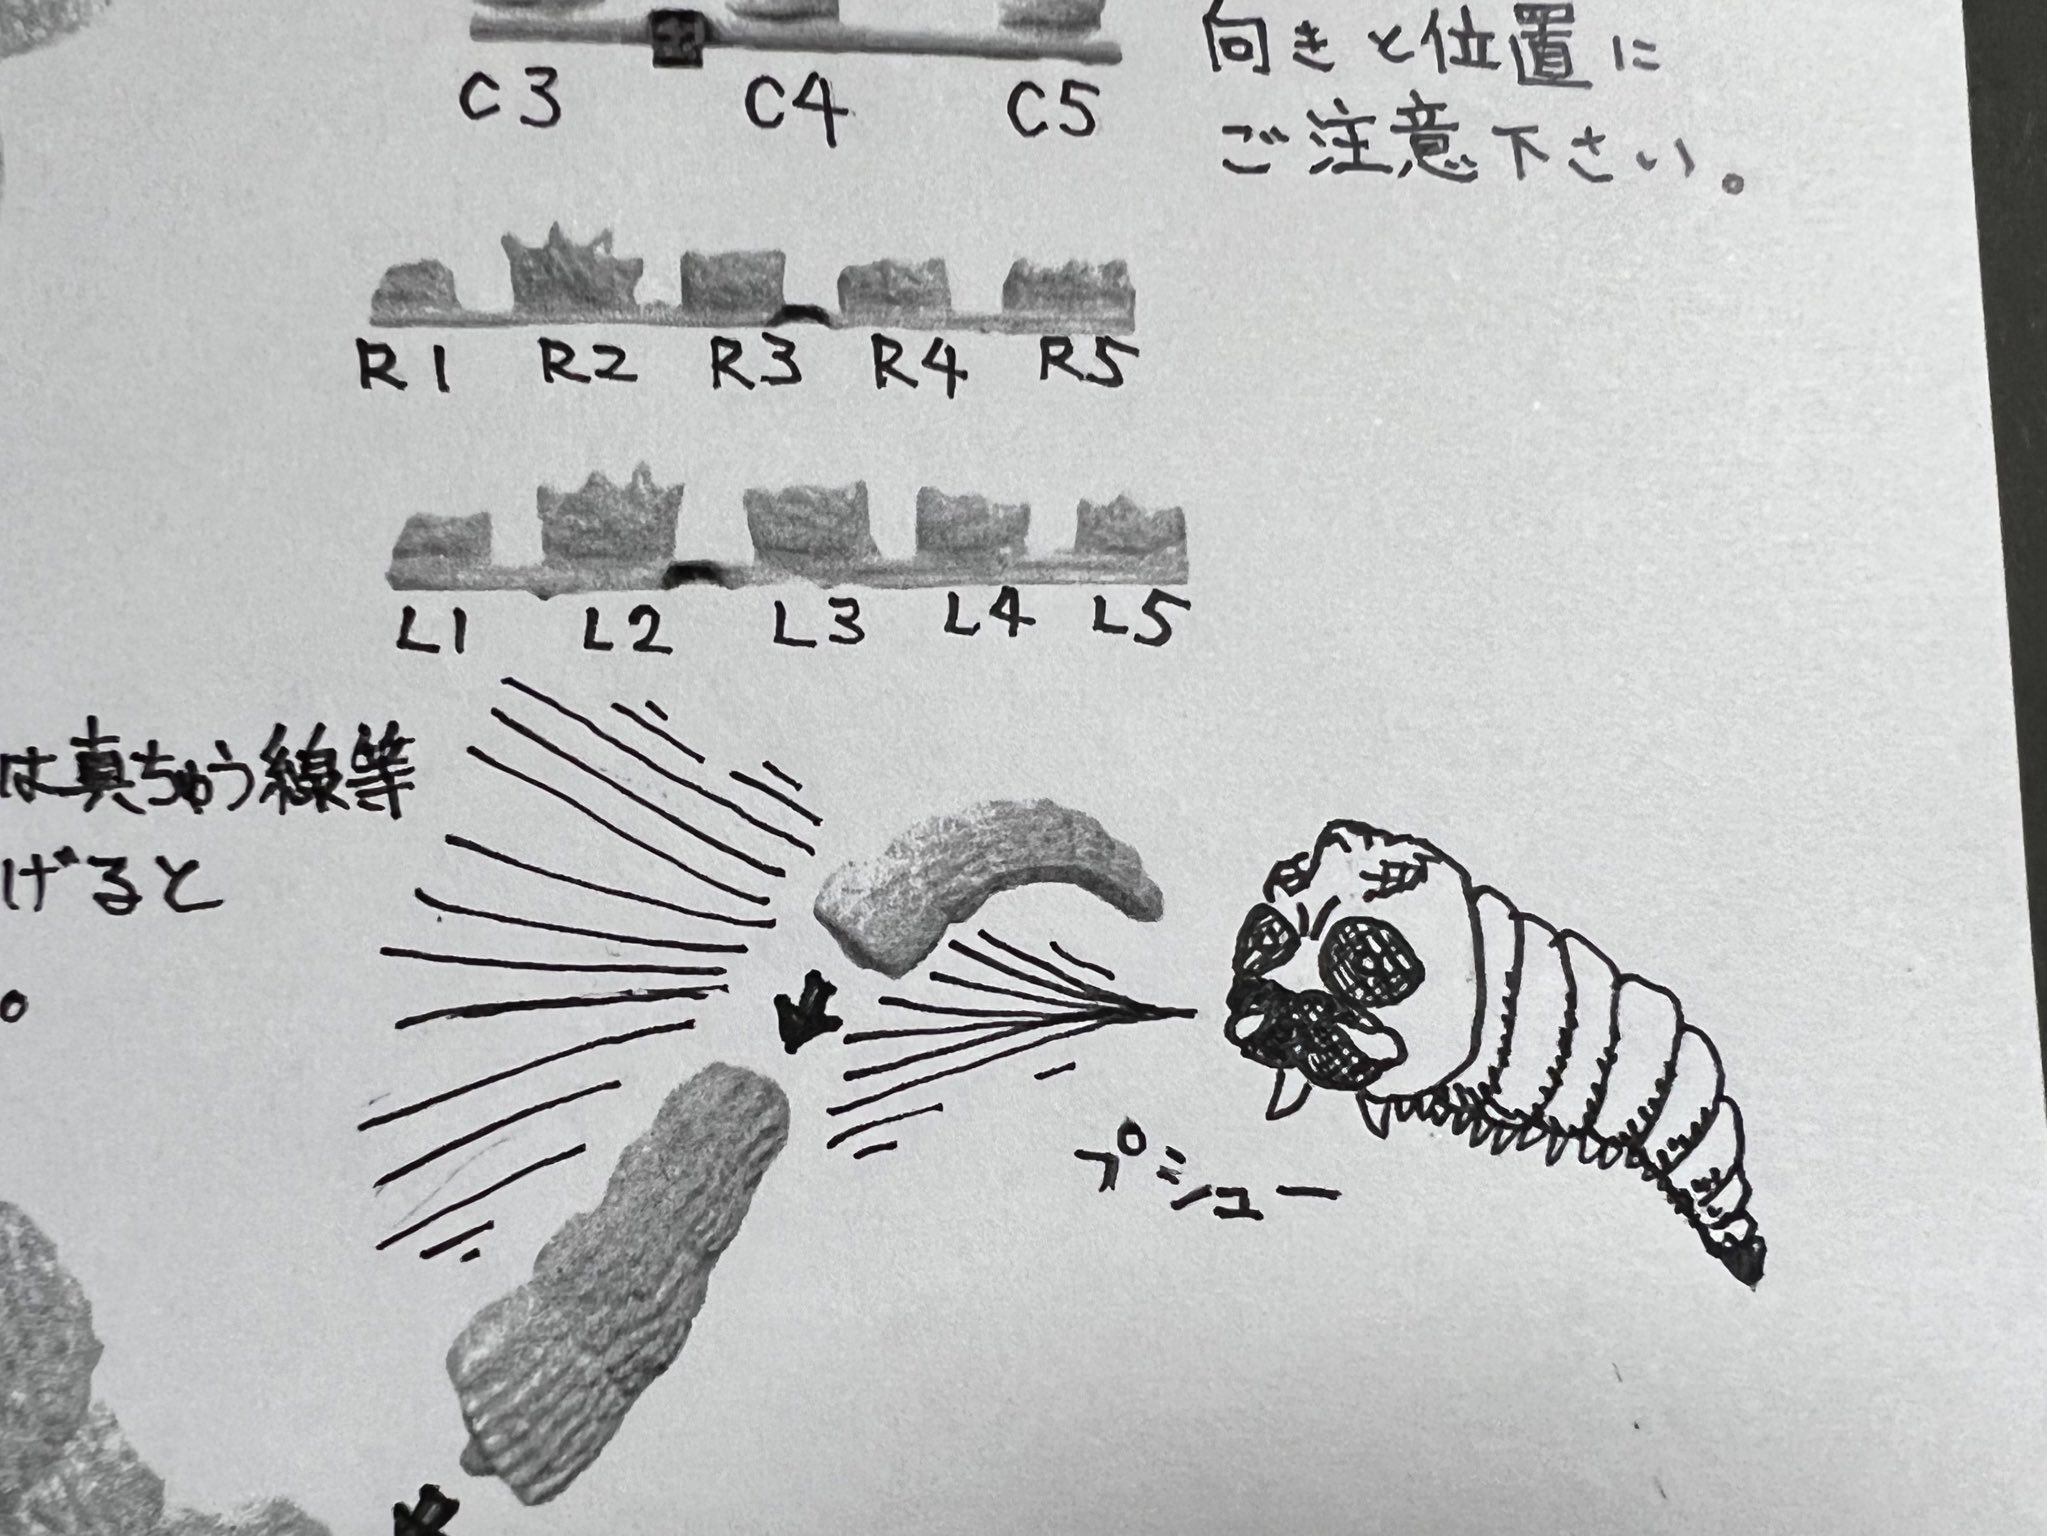 C3 C4 C5
向きと位置に
ご注意下さい。
R1 R2 R3 R4 R5
L1 L2 L3 L4 L5
は真ちゅう線等
げると
。
プシュー